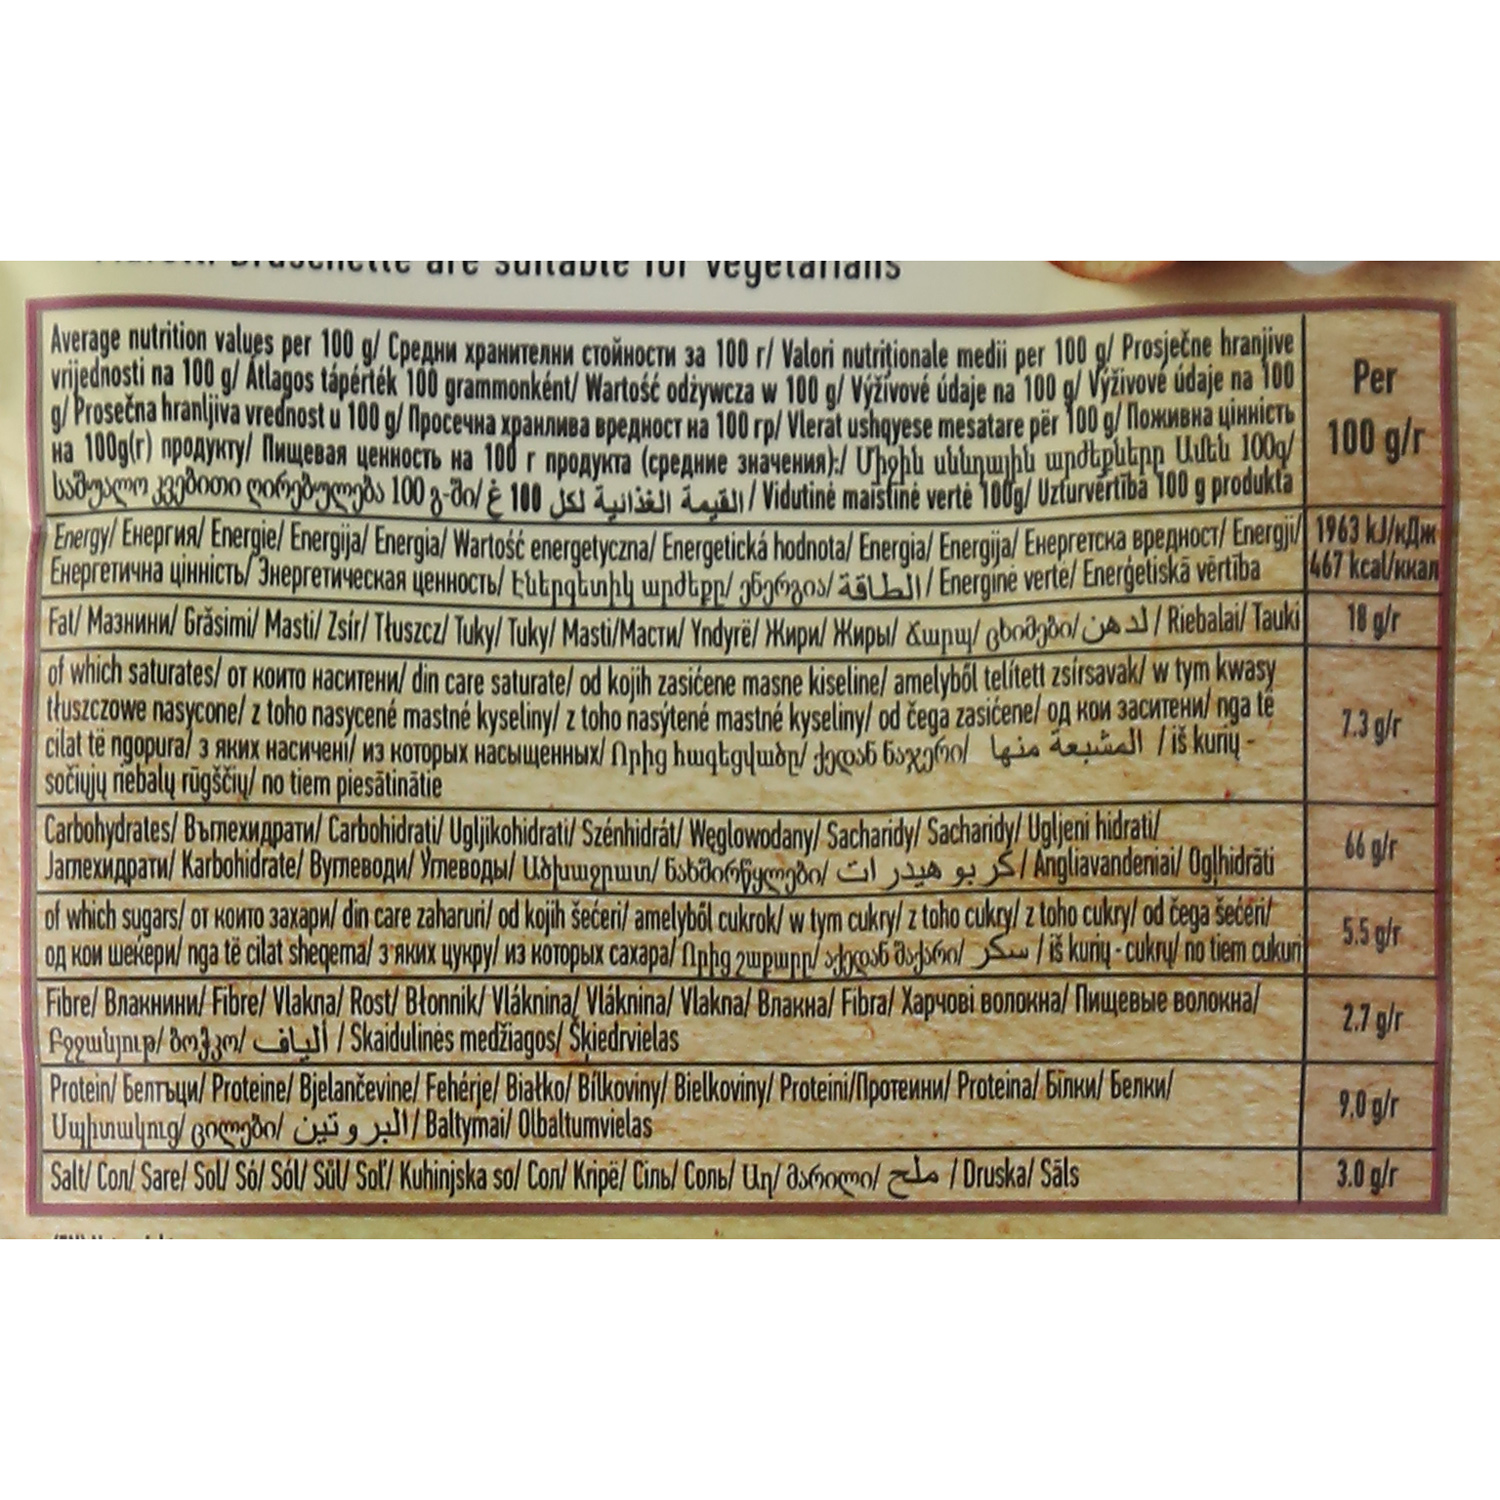 Bruschette are suitable for vegetarians
Average nutrition values per 100 g/ Средни хранителни стойности за 100 г/ Valori nutriționale medii per 100 g/ Prosječne hranjive
Per
vrijednosti na 100 g/ Átlagos tápérték 100 grammonként/ Wartość odżywcza w 100 g/ Výživové údaje na 100 g/ Výživové údaje na 100
g/ Prosečna hranljiva vrednost u 100 g/ Просечна хранлива вредност на 100 гр/ Vlerat ushqyese mesatare për 100 g/ Поживна цінність
100 g/г
на 100g(г) продукту/ Пищевая ценность на 100 г продукта (средние значения):/ Միջին սննդային արժեքները Ամեն 100գ/
საშუალო კვებითი ღირებულება 100 გ-ში/ القيمة الغذائية لكل 100 غ / Vidutinė maistinė vertė 100g/ Uzturvērtība 100 g produkta
Energy/ Енергия/ Energie/ Energija/ Energia/ Wartość energetyczna/ Energetická hodnota/ Energia/ Energija/ Енергетска вредност/ Energji/
1963 kJ/кДж
Енергетична цінність/ Энергетическая ценность/ Էներգետիկ արժեքը/ ენერგია/ الطاقة / Energinė vertė/ Enerģetiskā vērtība
467 kcal/ккал
Fat/ Мазнини/ Grăsimi/ Masti/ Zsír/ Tłuszcz/ Tuky/ Tuky/ Masti/Масти/ Yndyrë/ Жири/ Жиры/ Ճարպ/ ცხიმები/ لدهن / Riebalai/ Tauki
18 g/г
of which saturates/ от които наситени/ din care saturate/ od kojih zasićene masne kiseline/ amelyből telített zsírsavak/ w tym kwasy
tłuszczowe nasycone/ z toho nasycené mastné kyseliny/ z toho nasýtené mastné kyseliny/ od čega zasićene/ од кои заситени/ nga të
7.3 g/г
cilat të ngopura/ з яких насичені/ из которых насыщенных/ Որից հագեցվածը/ ქედან ნაჯერი/ المشبعة منها / iš kurių -
sočiųjų riebalų rūgščių/ no tiem piesātinātie
Carbohydrates/ Въглехидрати/ Carbohidrați/ Ugljikohidrati/ Szénhidrát/ Węglowodany/ Sacharidy/ Sacharidy/ Ugljeni hidrati/
66 g/г
Јаглехидрати/ Karbohidrate/ Вуглеводи/ Углеводы/ Ածխաջրատ/ ნახშირწყლები/ كربو هيدر ات / Angliavandeniai/ Ogļhidrāti
of which sugars/ от които захари/ din care zaharuri/ od kojih šećeri/ amelyből cukrok/ w tym cukry/ z toho cukry/ z toho cukry/ od čega šećeri/
5.5 g/г
од кои шеќери/ nga të cilat sheqerna/ з яких цукру/ из которых сахара/ Որից շաքարը/ აქედან შაქარი/ سكر / iš kurių - cukrų/ no tiem cukuri
Fibre/ Влакнини/ Fibre/ Vlakna/ Rost/ Błonnik/ Vláknina/ Vláknina/ Vlakna/ Влакна/ Fibra/ Харчові волокна/ Пищевые волокна/
2.7 g/г
Բջջանյութ/ ბოჭკო/ ألياف / Skaidulinės medžiagos/ Šķiedrvielas
Protein/ Белтъци/ Proteine/ Bjelančevine/ Fehérje/ Białko/ Bílkoviny/ Bielkoviny/ Proteini/Протеини/ Proteina/ Білки/ Белки/
9.0 g/г
Սպիտակուց/ ცილები/ البروتين / Baltymai/ Olbaltumvielas
Salt/ Сол/ Sare/ Sol/ Só/ Sól/ Sůl/ Soľ/ Kuhinjska so/ Сол/ Kripë/ Сіль/ Соль/ Աղ/ მარილი/ ملح / Druska/ Sāls
3.0 g/г